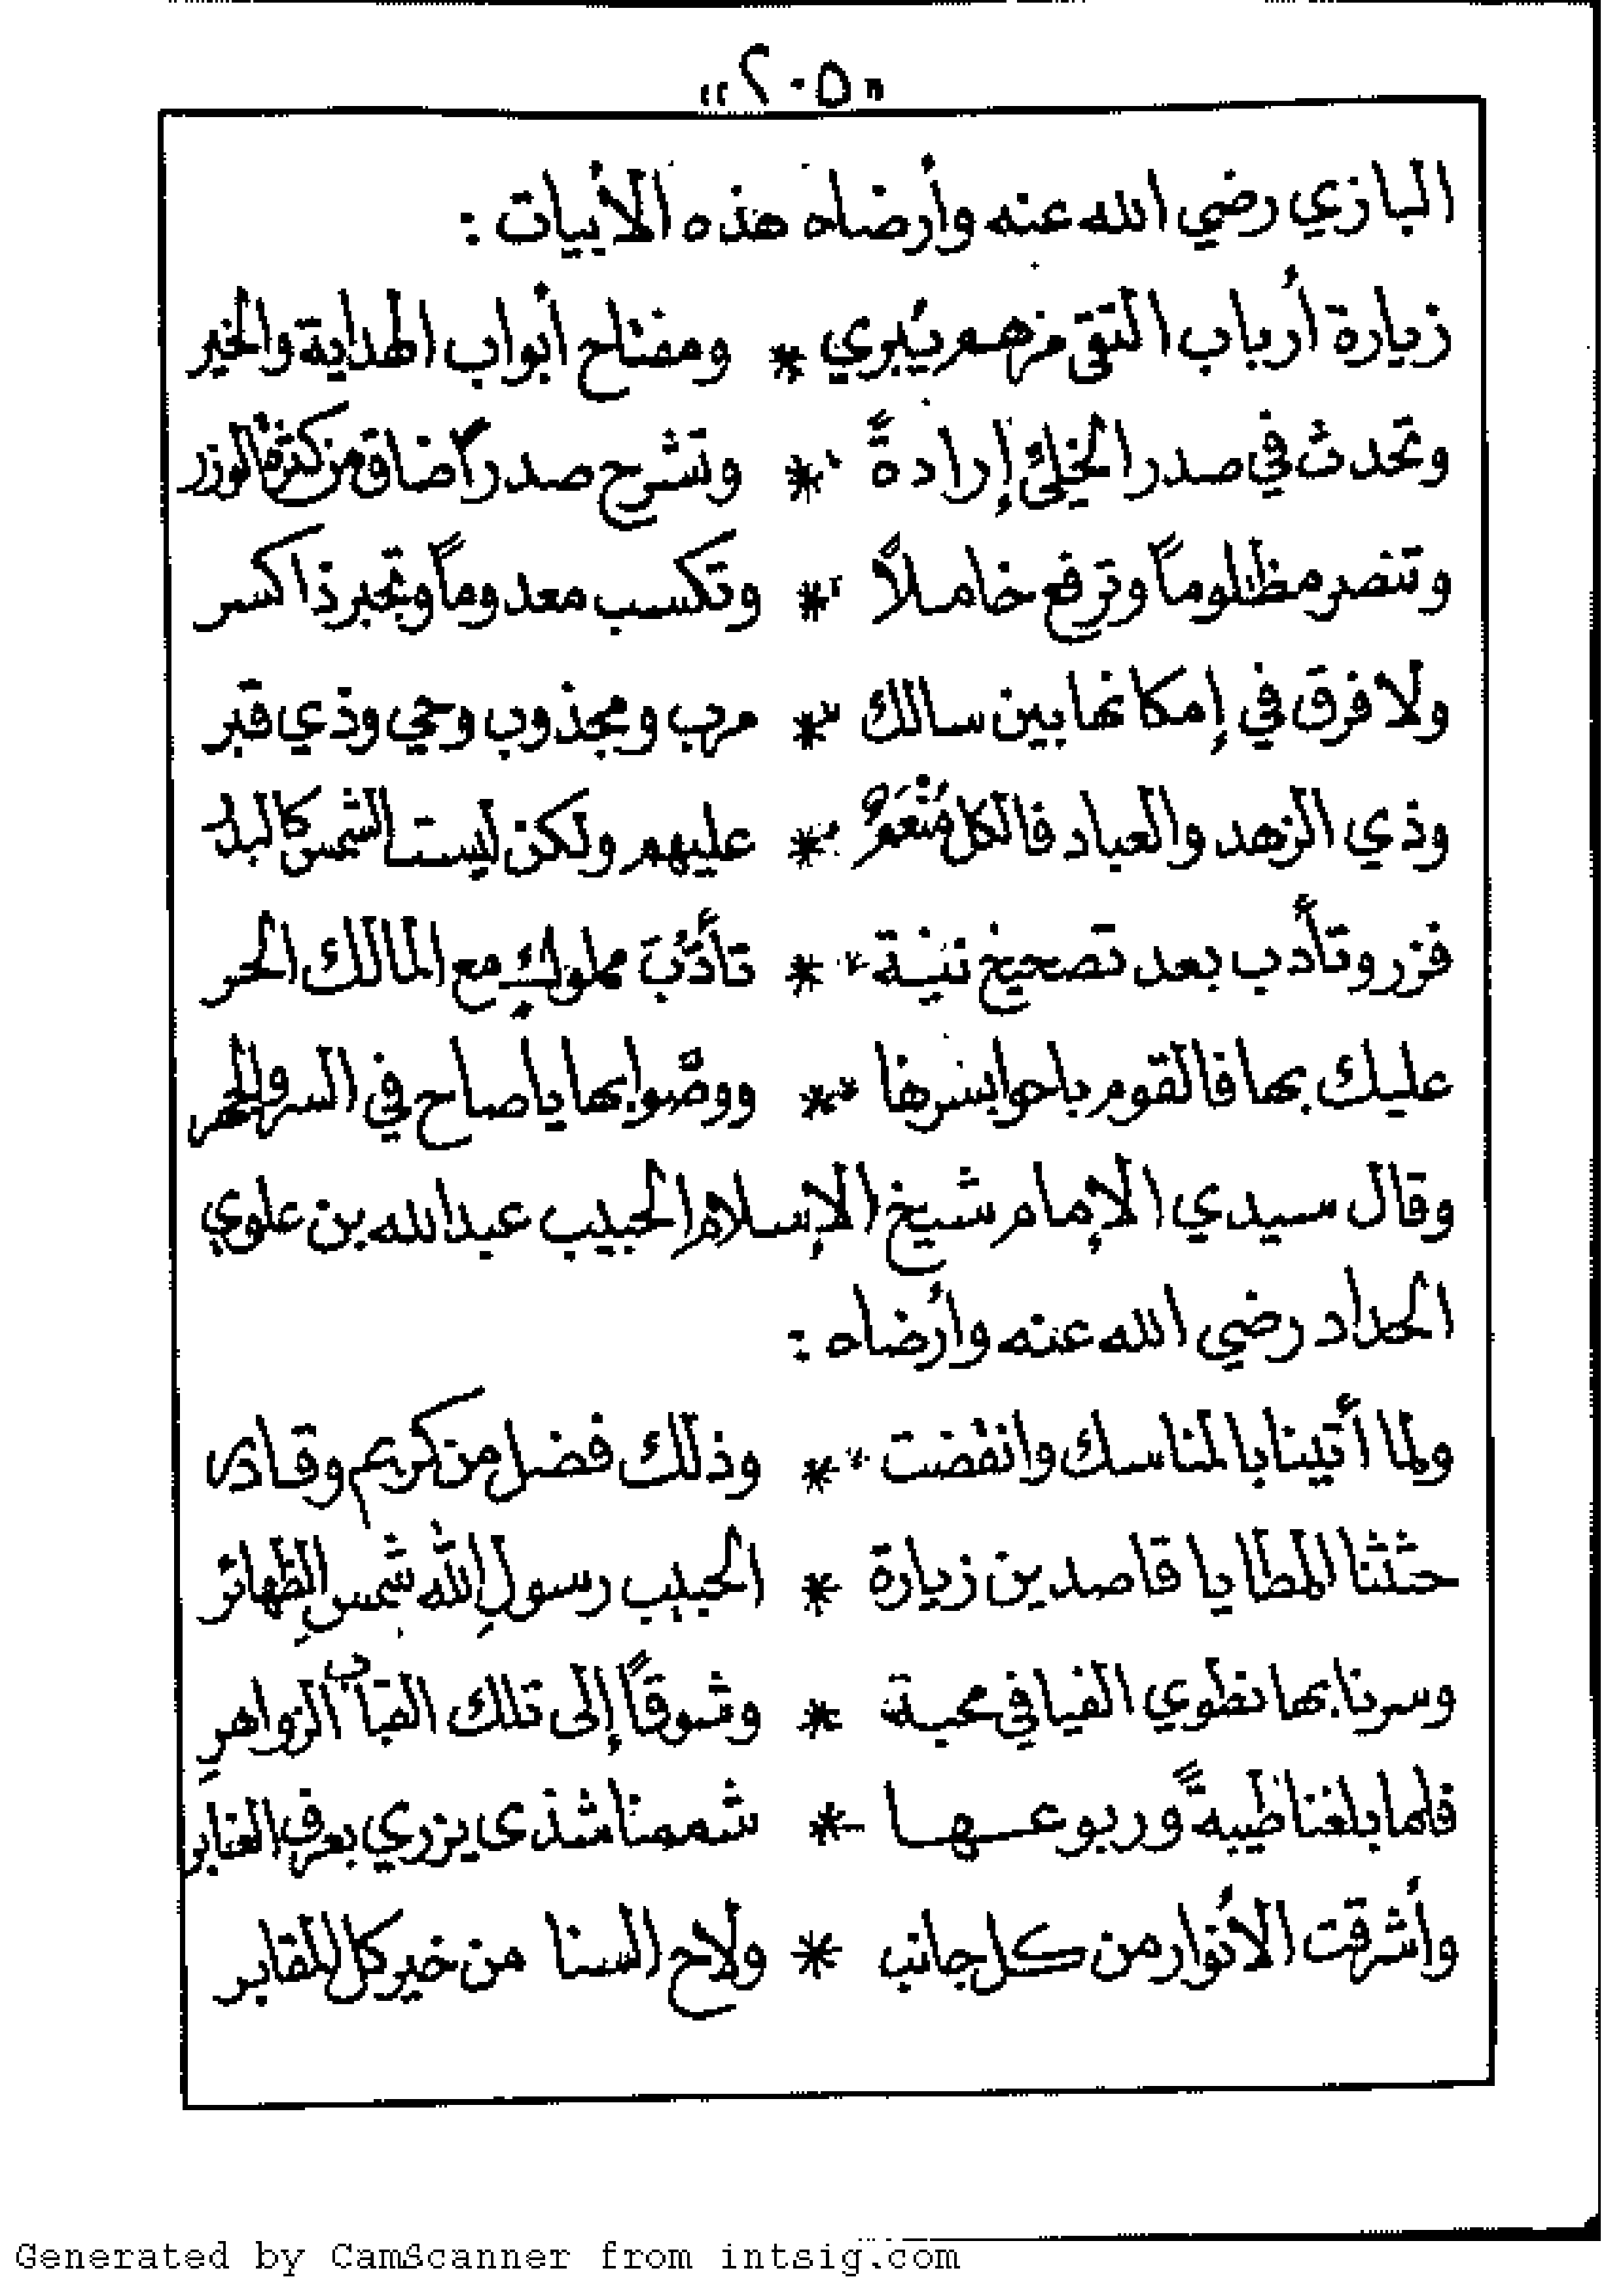 «٢٠٥»
البازي رضي الله عنه وأرضاه هذه الأبيات :
زيارة أرباب التقى مرهم يُبري * ومفتاح أبواب الهداية والخير
وتحدث في صدر الخليّ إرادةً * وتشرح صدراً ضاق من كثرة الوزر
وتنصر مظلوماً وترفع خاملاً * وتكسب معدوماً وتجبر ذا كسر
ولا فرق في إمكانها بين سالك * مرب ومجذوب وحي وذي قبر
وذي الزهد والعباد فالكل مُنْعَمٌ * عليهم ولكن ليست الشمس كالبدر
فزر وتأدب بعد تصحيح نية * تأدُّبَ مملوكٍ مع المالك الحر
عليك بها فالقوم باحوا بسرها * ووصّوا بها يا صاح في السر والجهر
وقال سيدي الإمام شيخ الإسلام الحبيب عبدالله بن علوي
الحداد رضي الله عنه وأرضاه :
ولما أتينا بالمناسك وانقضت * وذلك فضل من كريم وقادر
حثثنا المطايا قاصدين زيارة * الحبيب رسولِ الله شمسِ الظهائر
وسرنا بها نطوي الفيافي محبة * وشوقاً إلى تلك القباب الزواهرِ
فلما بلغنا طيبةً وربوعها * شممنا شذى يزري بعرف العنابر
وأشرقت الأنوار من كل جانب * ولاح السنا من خير كل المقابر
Generated by CamScanner from intsig.com